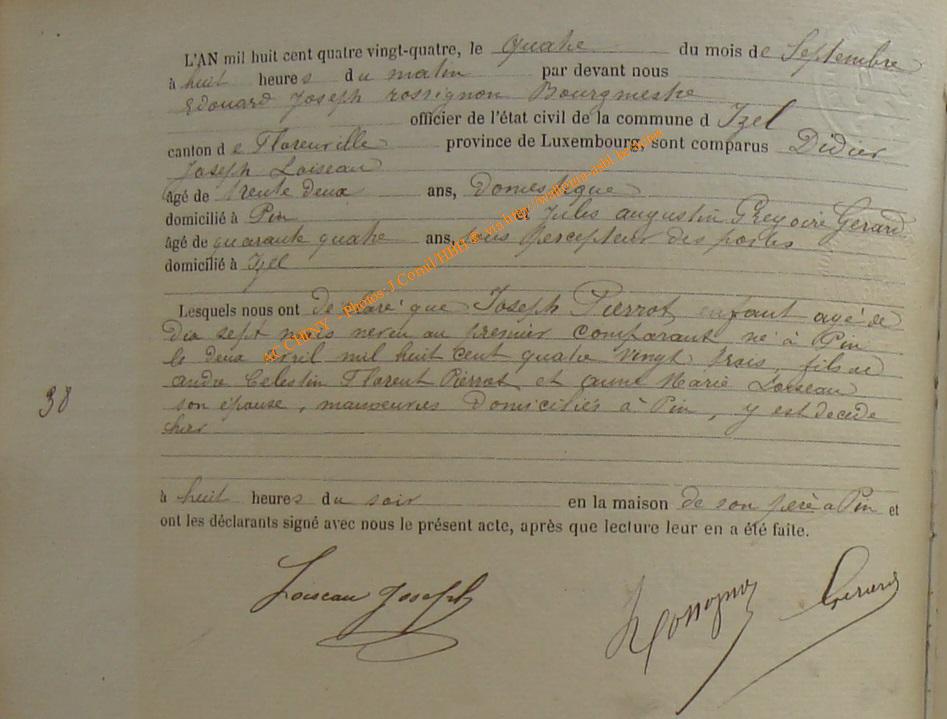 L'AN mil huit cent quatre vingt-quatre, le quatre du mois de Septembre
à huit heures du matin par devant nous
Edouard Joseph rossignon Bourgmestre
officier de l'état civil de la commune d Izel
canton de Florenville province de Luxembourg, sont comparus Didier
Joseph Loiseau
âgé de trente deux ans, Domestique
domicilié à Pin et Jules augustin Gregoire Gerard
âgé de quarante quatre ans, sous percepteur des postes
domicilié à Izel
Lesquels nous ont declaré que Joseph Pierrot enfant agé de
Dix sept mois neveu au premier comparant né à Pin
le deux avril mil huit cent quatre vingt trois, fils de
andré Celestin Florent Pierrot et anne Marie Loiseau
son épouse, manoeuvres Domiciliés à Pin, y est decede
hier
38
à huit heures du soir en la maison de son père a Pin et
ont les déclarants signé avec nous le présent acte, après que lecture leur en a été faite.
Loiseau Joseph
Rossignon
Gerard